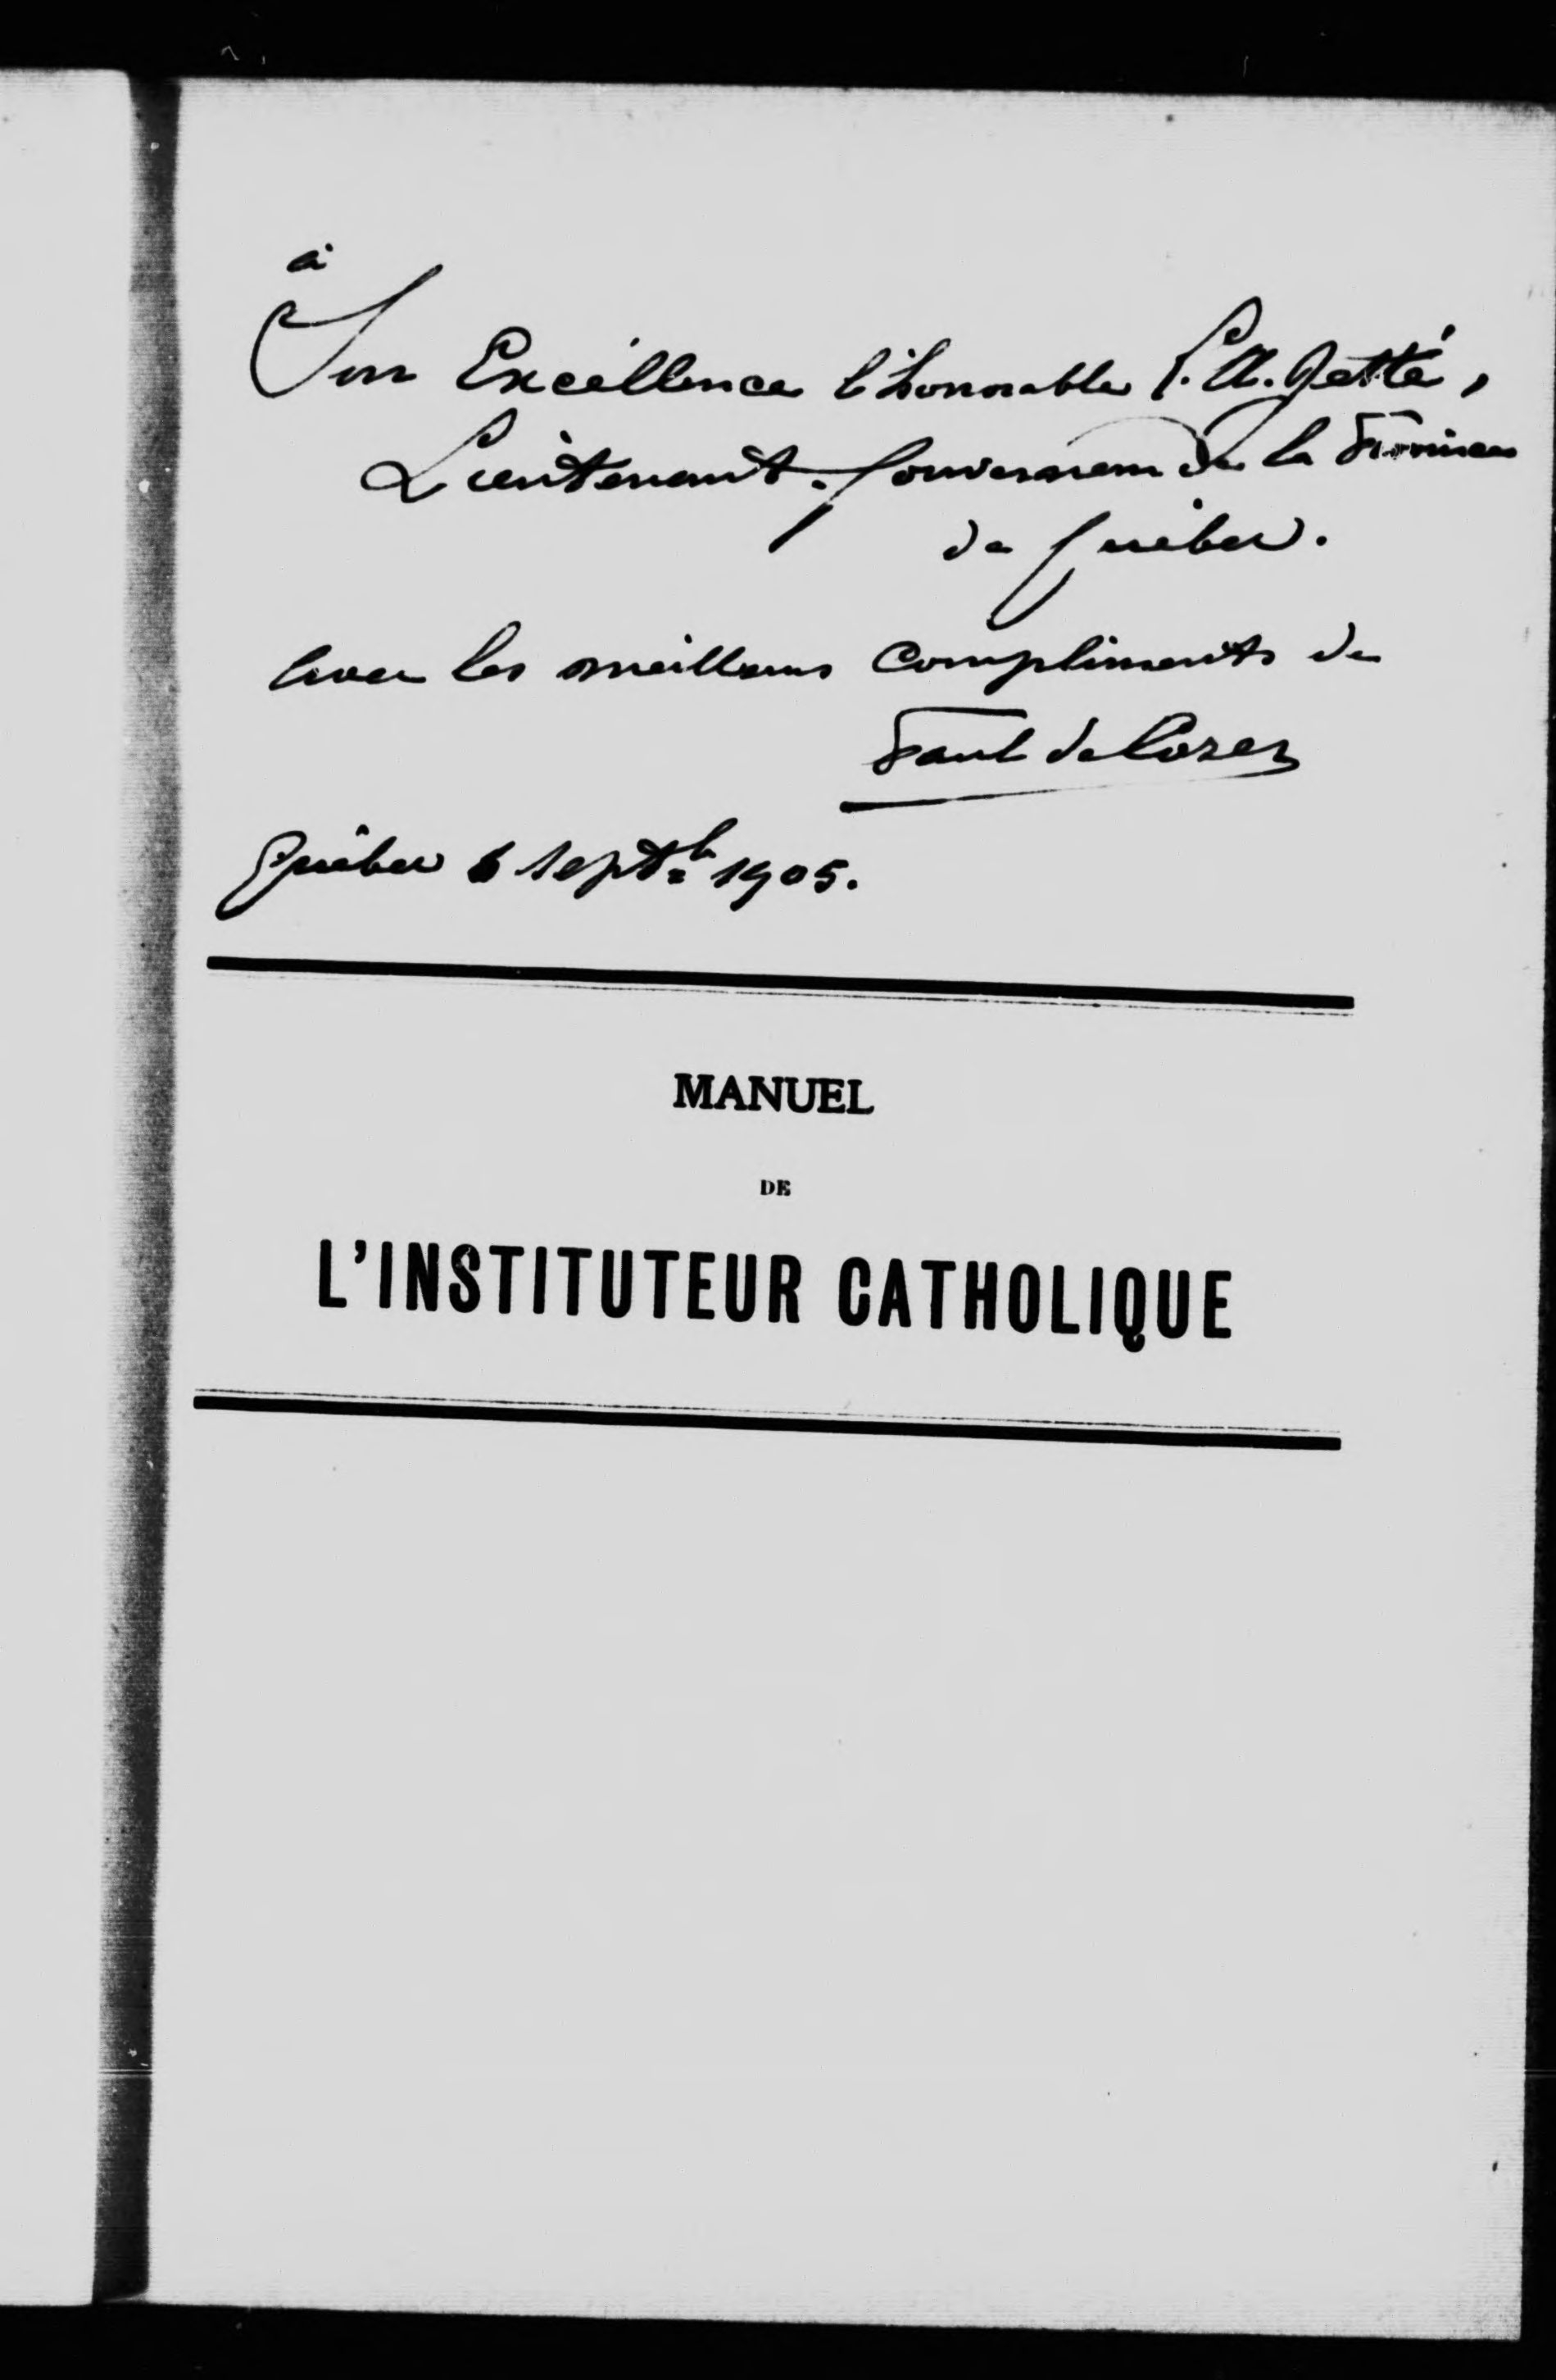 à
Son Excellence l'honorable L. A. Jetté,
Lieutenant-Gouverneur de la Province
de Québec.
Avec les meilleurs compliments de
Paul de Cazes
Québec 6 Septbre 1905.
MANUEL
DE
L'INSTITUTEUR CATHOLIQUE